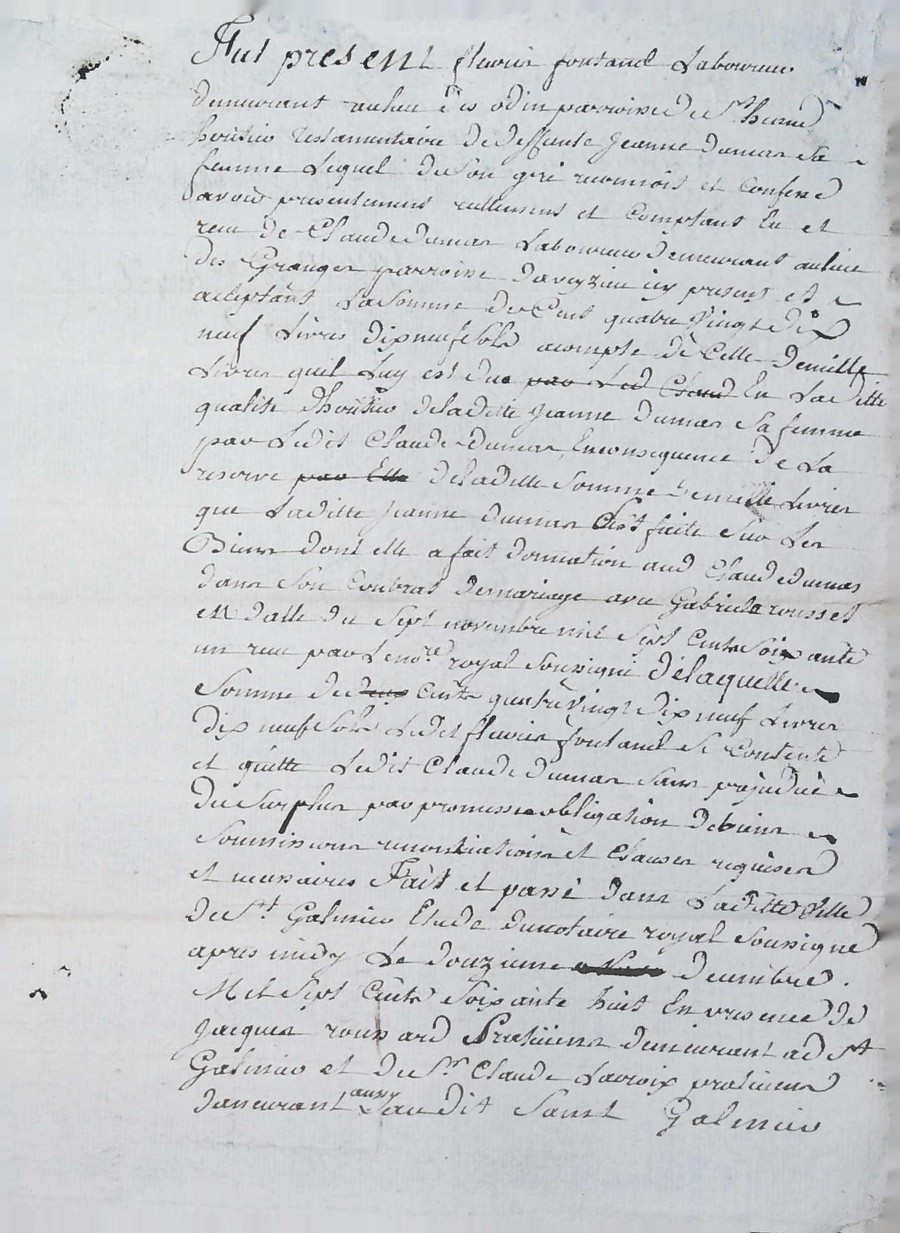 Fut present fleurie fontanel Laboureur
demeurant aulieu parroisse de St
heritier testamentaire de deffunte jeanne dumas sa
femme Lequel de son gré reconnois et confesse
avoir presentement reellement et comptant Eu et
receu de Claude dumas Laboureur demeurant aulieu
des Granges parroisse daveyzieu icy present et
aceptant La somme de Cent quatre vingt dix
neuf Livres dixneuf sols acompte de Celle demille
Livres quil Luy est due par Led Claud En Laditte
qualité dheritier deladitte jeanne dumas sa femme
par Ledit Claude dumas Enconsequence de La
reserve par Elle deladitte somme demille Livres
que Laditte jeanne dumas Cest faite sur Les
Biens dont elle a fait donnation aud Claude dumas
dans son contrat demariage avec Gabriele rousset
en datte du sept novembre mil sept cents soixante
un receu par Le nore royal soussigné delaquelle
somme de deux Cents quatrevingt dix neuf Livres
dix neuf sols Ledit fleurie fontanel se contente
et quitte Ledit Claude dumas sans prejudice
du surplus par promesse obligation debiens
soumissions renontiations et clauses requises
et necessaires Fait et passé dans Laditte ville
de St Galmier Etude dunotaire royal soussigné
apres midy Le douzieme decembre.
Mil sept Cents soixante huit En presence de
jacques roussard Praticien demeurant ad St
Galmier et de Sr Claude Lacroix praticien
demeurant aussy audit saint Galmier